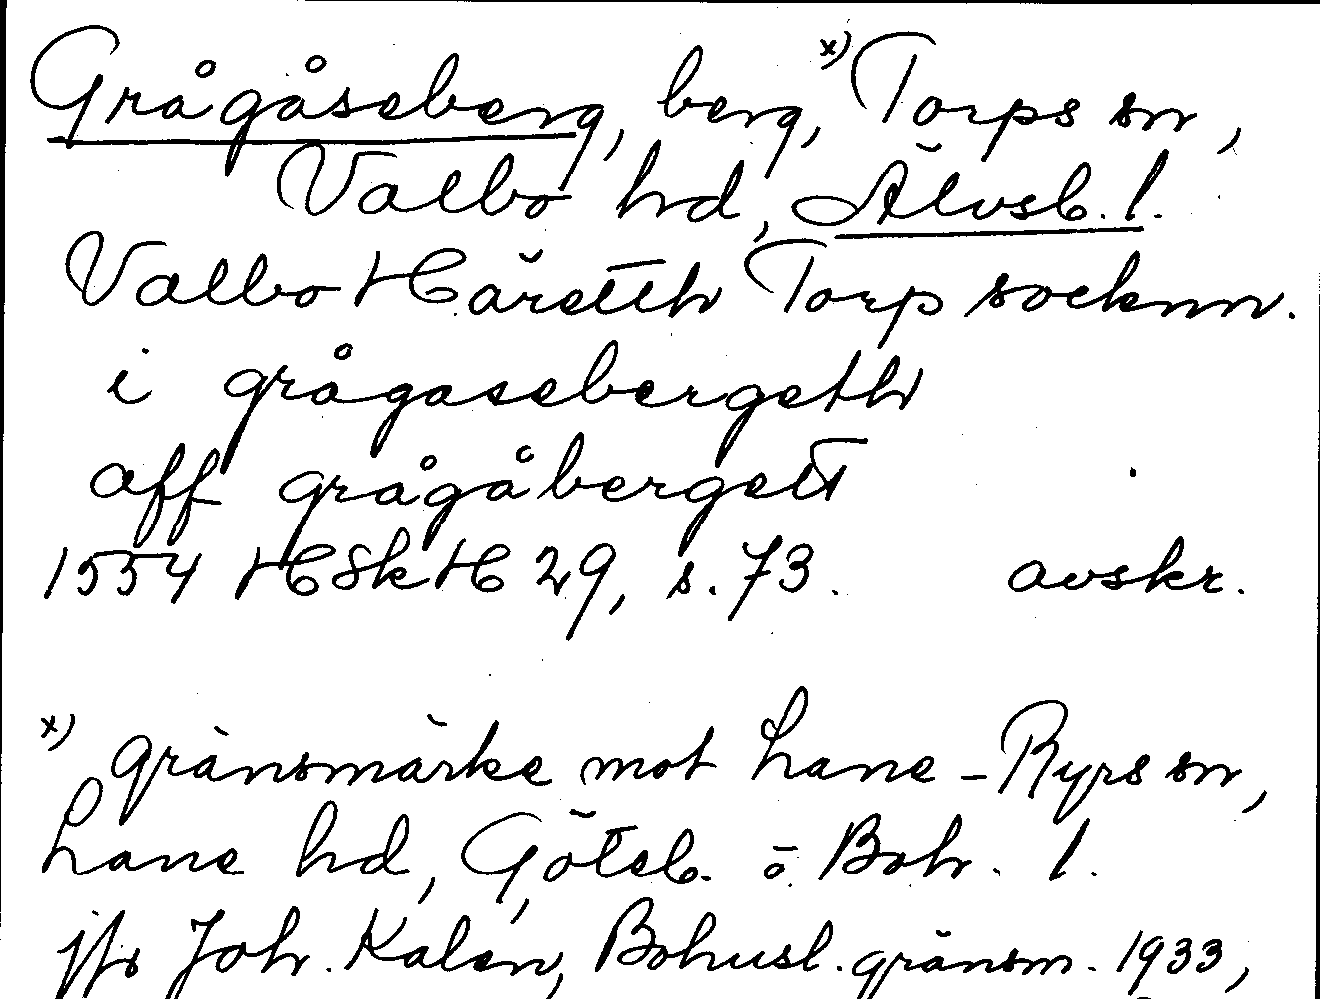 Grågåseberg, berg, x) Torps sn,
Valbo hd, Älvsb. l.
Valbo Häretth Torp socknn.
i grågasebergeth
aff grågåbergett
1554 HSkH 29, s. 73. avskr.
x) gränsmärke mot Lane-Ryrs sn,
Lane hd, Göteb. o. Boh. l.
jfr Joh. Kalén, Bohusl. gränsm. 1933,